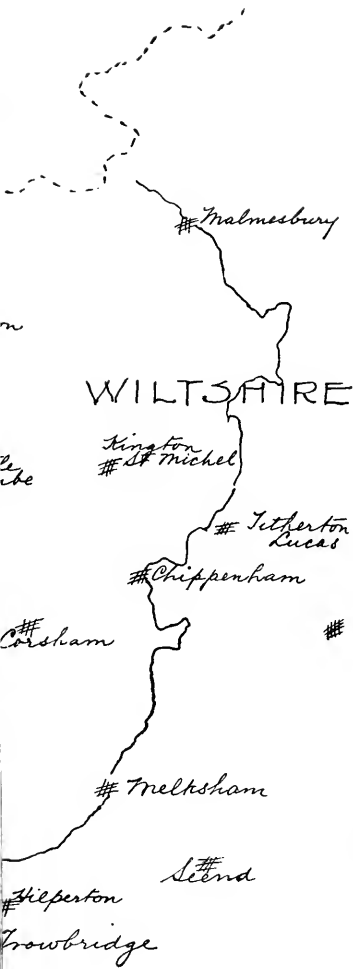 Malmesbury
WILTSHIRE
Kington
St Michel
Tetherton
Lucas
Chippenham
Corsham
Melksham
Seend
Hilperton
Trowbridge